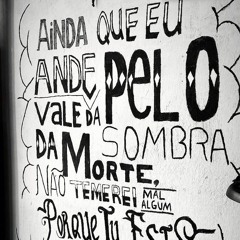 AINDA QUE EU
ANDE PELO
VALE DA
DA SOMBRA
MORTE,
NÃO TEMEREI MAL ALGUM
PORQUE TU ESTÁ